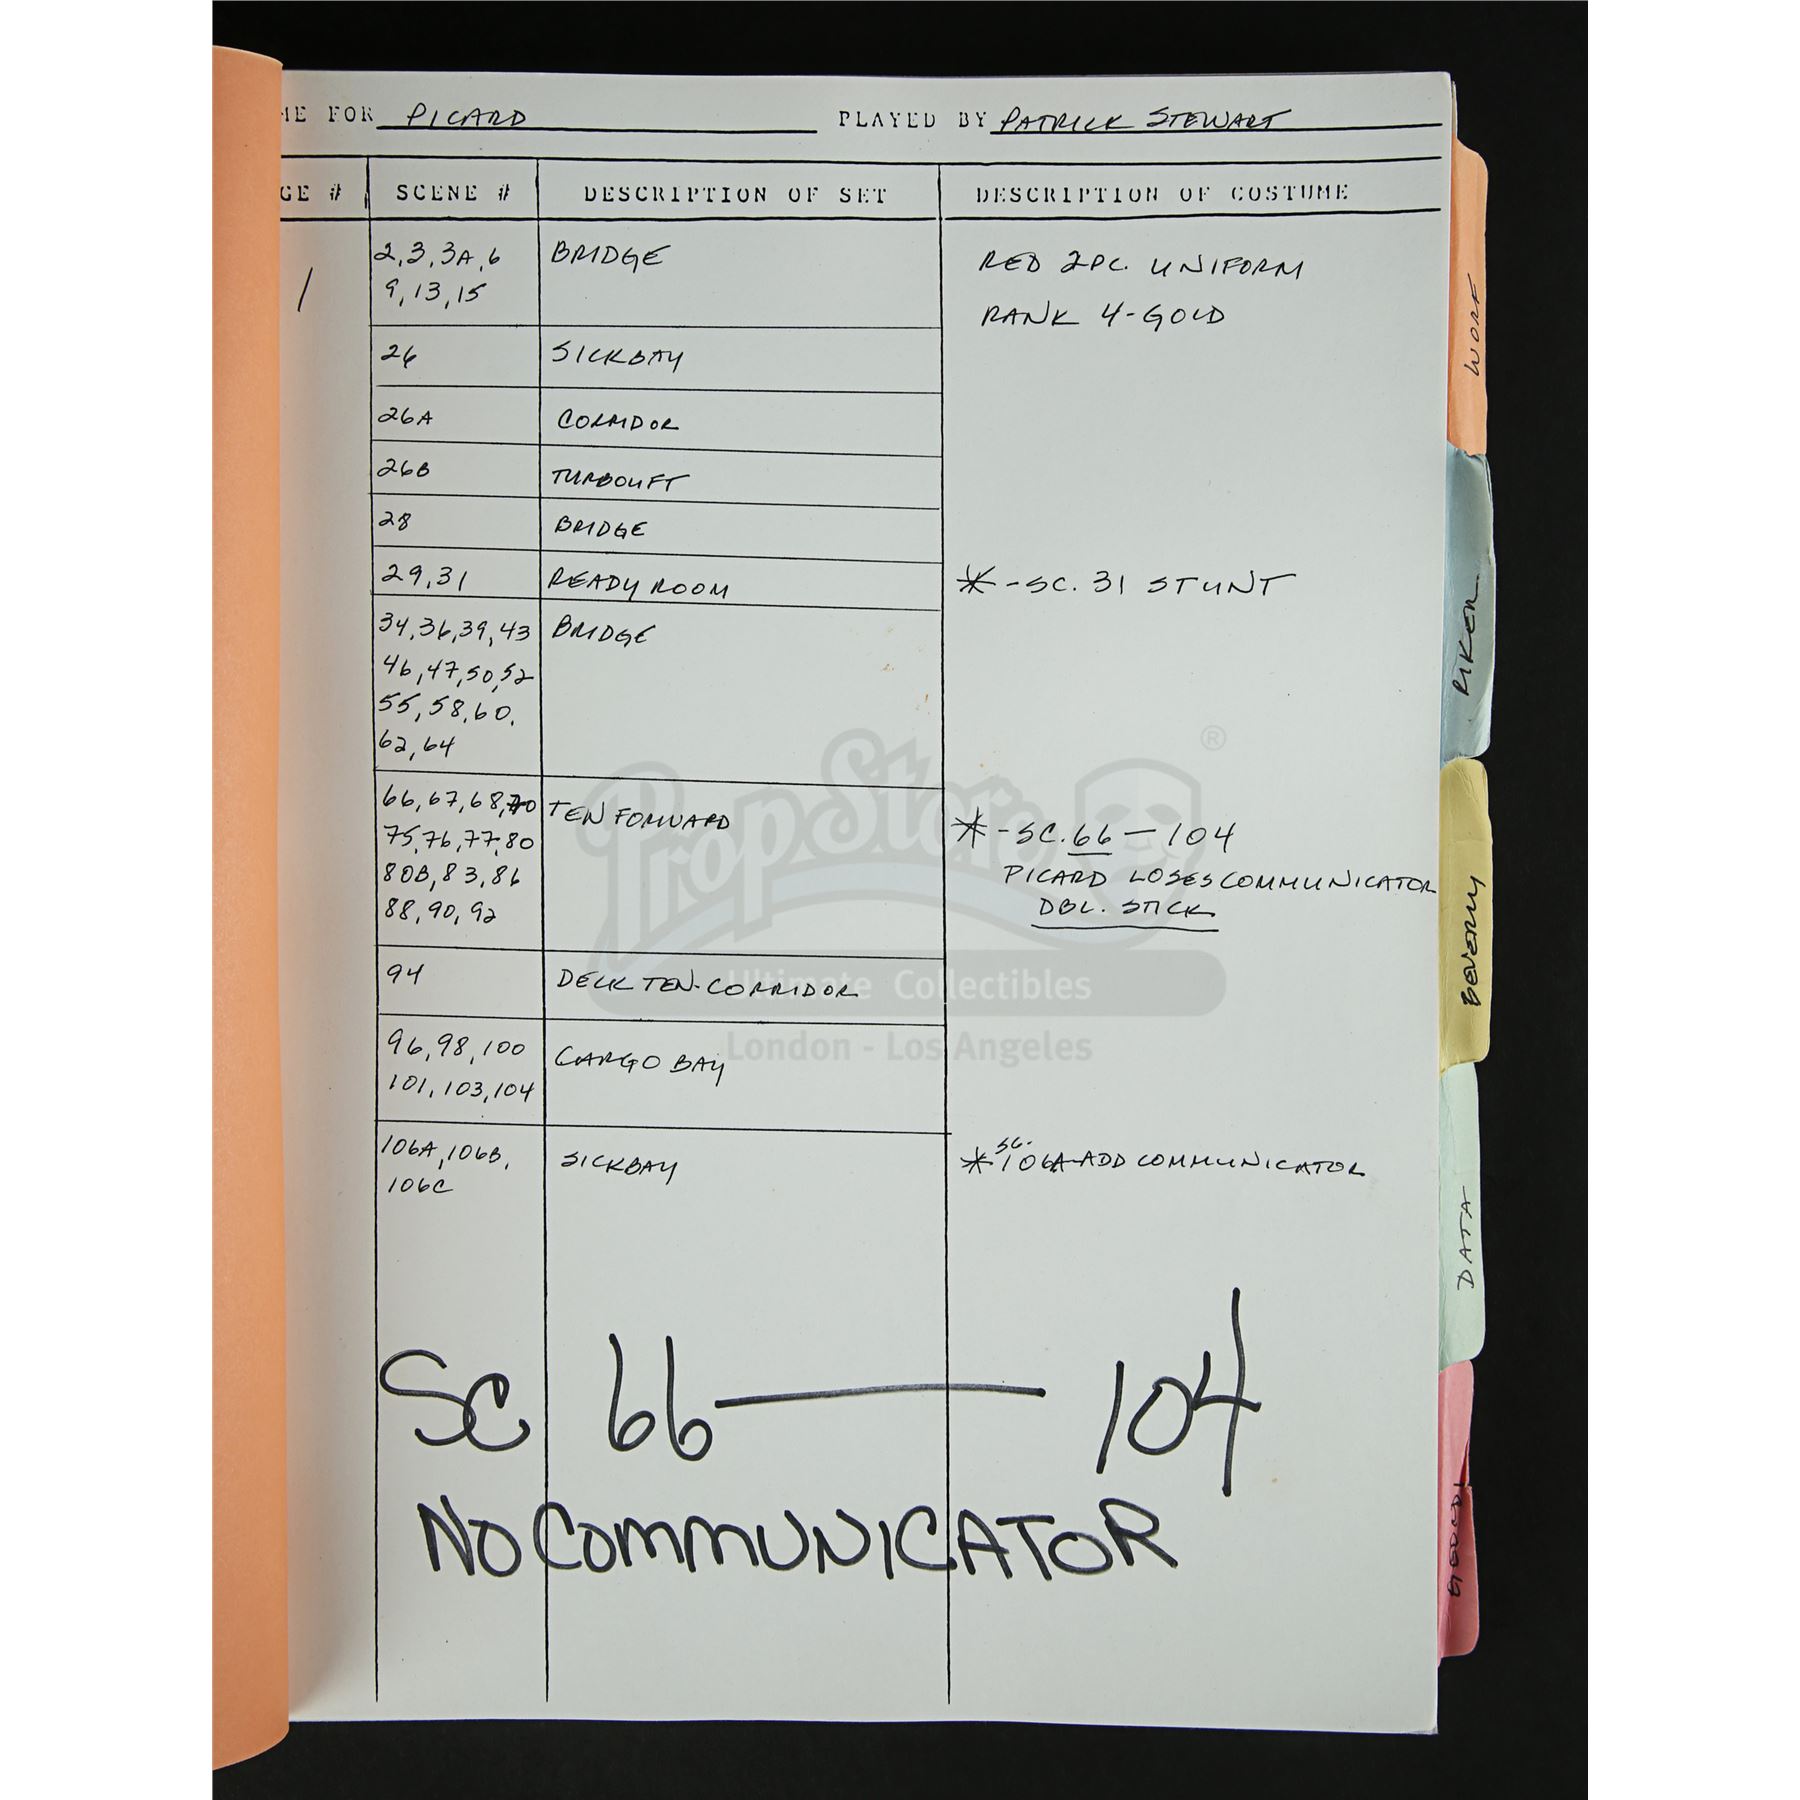 ME FOR PICARD PLAYED BY PATRICK STEWART
GE # SCENE # DESCRIPTION OF SET DESCRIPTION OF COSTUME
1
2, 3, 3A, 6 BRIDGE RED 2PC. UNIFORM
9, 13, 15
RANK 4-GOLD
26 SICKBAY
26A CORRIDOR
26B TURBOLIFT
28 BRIDGE
29, 31 READY ROOM * - SC. 31 STUNT
34, 36, 39, 43 BRIDGE
46, 47, 50, 52
55, 58, 60,
62, 64
66, 67, 68, 70 TEN FORWARD
75, 76, 77, 80 * - SC. 66 — 104
80B, 83, 86 PICARD LOSES COMMUNICATOR
88, 90, 92 DBL. STICK
94 DECK TEN-CORRIDOR
96, 98, 100 CARGO BAY
101, 103, 104
106A, 106B, SICKBAY * SC. 106A-ADD COMMUNICATOR
106C
SC 66 — 104
NO COMMUNICATOR
WORF
RIKER
BEVERLY
DATA
GEORDI
PropStore ®
Ultimate Collectibles
London - Los Angeles